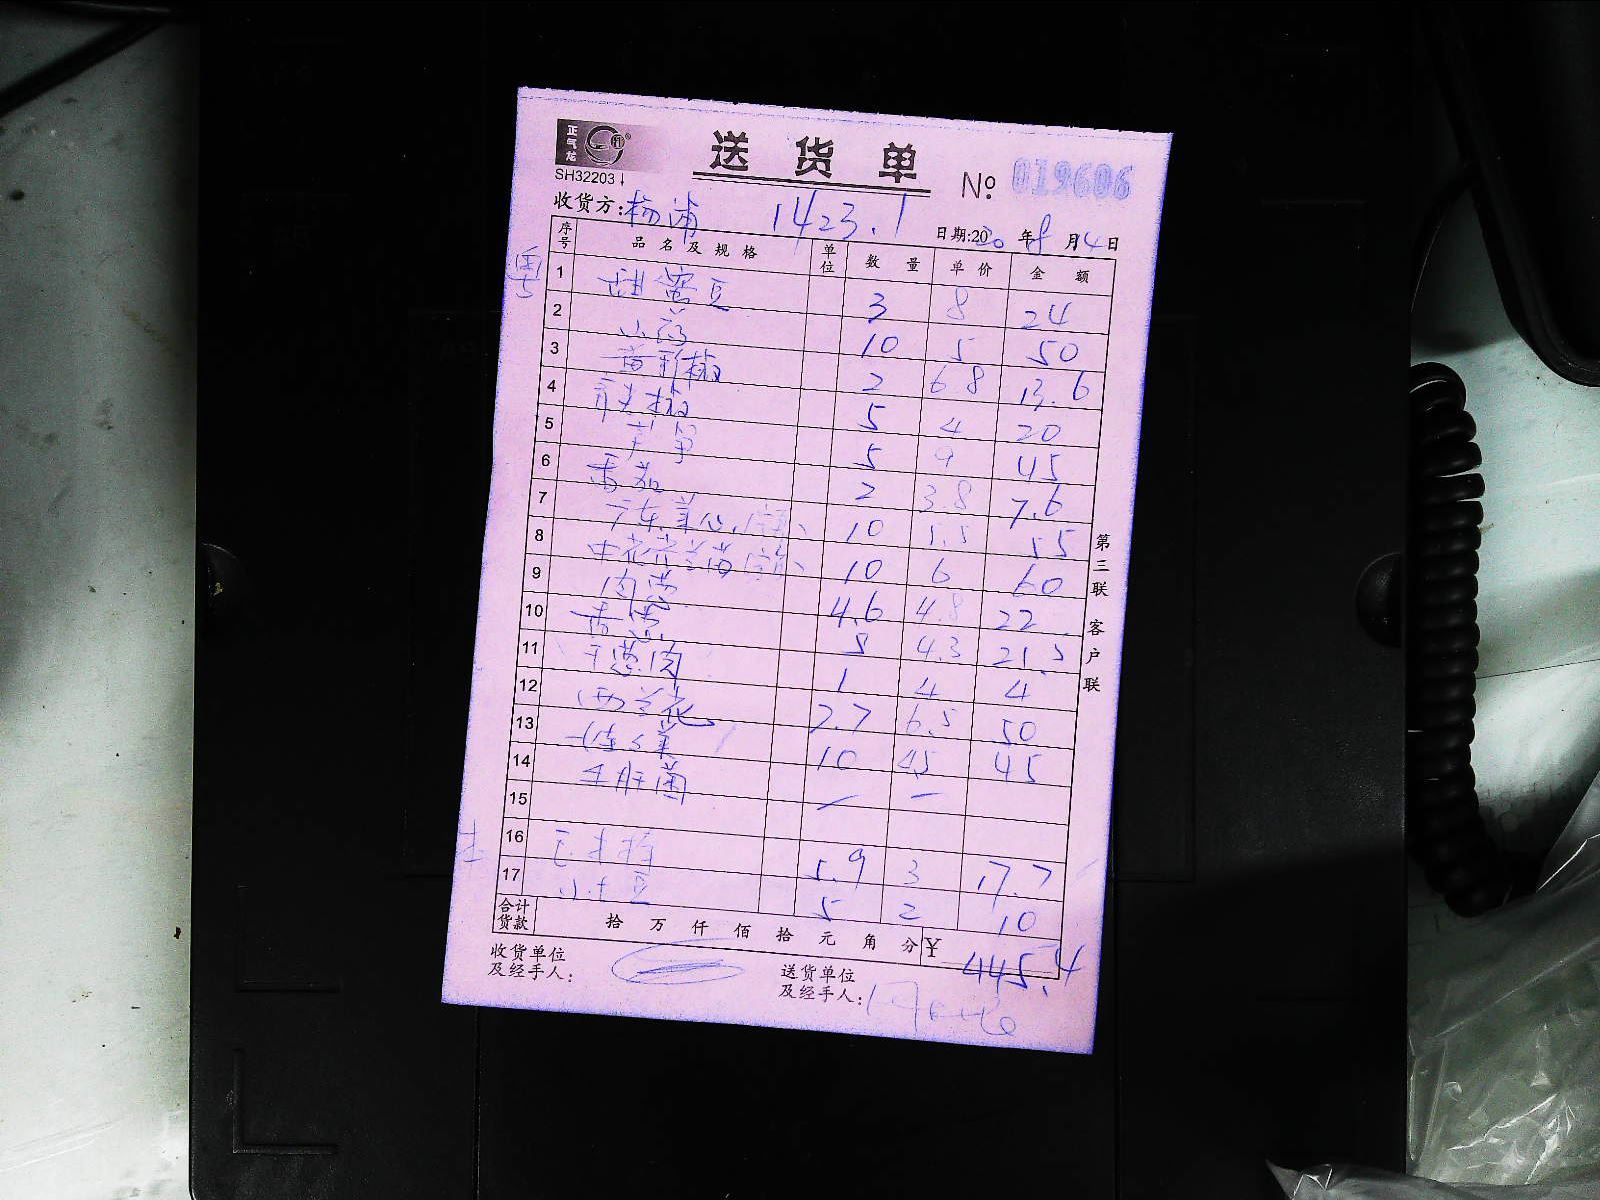 正气龙
送货单 № 019606
SH32203
收货方:杨浦 1423.1 日期:2020年8月4日
序号 品名及规格 单位 数量 单价 金额
粤
1 甜蜜豆 3 8 24
2 山药 10 5 50
3 黄彩椒 2 6.8 13.6
4 尖椒 5 4 20
5 芦笋 5 9 45
6 番茄 2 3.8 7.6
7 广东菜心 10 5.5 55
8 中芥兰苗 10 6 60
9 肉葱 4.6 4.8 22
10 青葱 5 4.3 21.5
11 干葱肉 1 4 4
12 西兰花 7.7 6.5 50
13 娃娃菜 10 4.5 45
14 牛肝菌 — —
15
16 5.9 3 17.7
17 小土豆 5 2 10
合计货款 拾 万 仟 佰 拾 元 角 分 ¥ 445.4
收货单位及经手人: 送货单位及经手人:
第三联 客户联